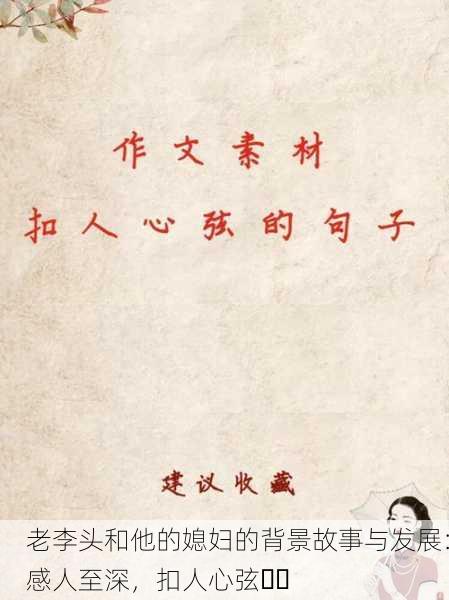 作文素材
扣人心弦的句子
建议收藏
老李头和他的媳妇的背景故事与发展：
感人至深，扣人心弦